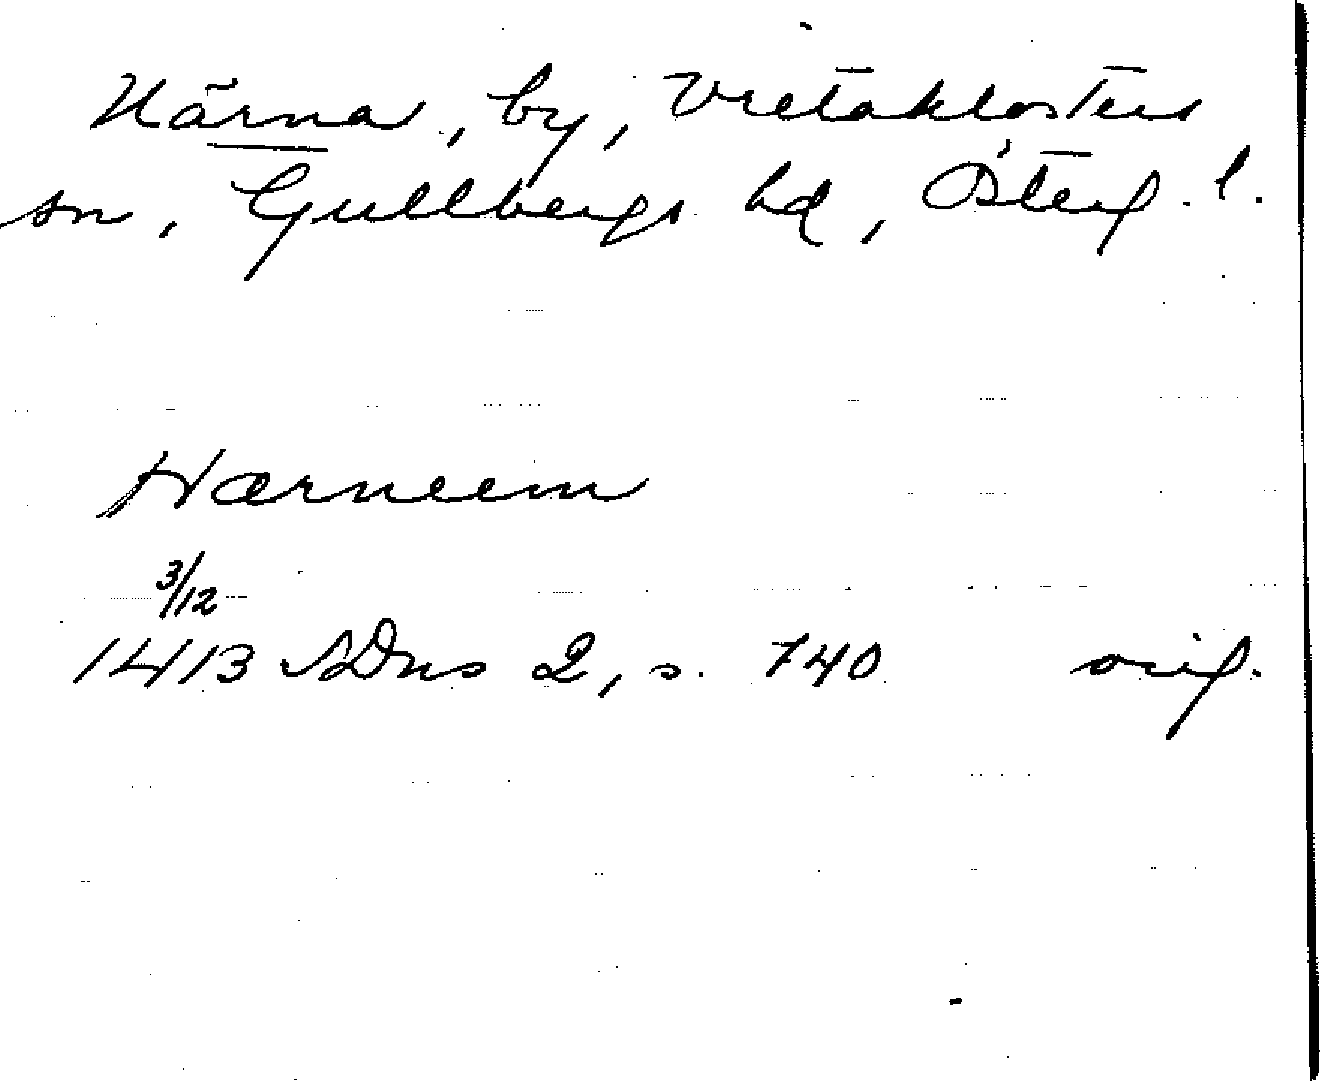 Härna, by, Vretaklosters
sn, Gullbergs hd, Österg. l.
Hærneem
3/12
1413 SDns 2, s. 740 orig.